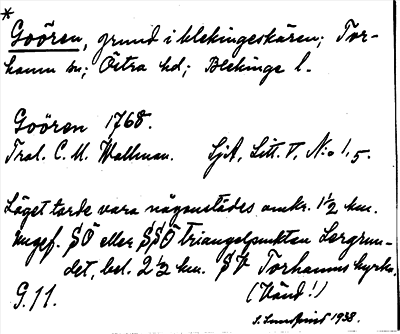 *
Goören, grund i blekingeskären; Tor-
hamn sn; Östra hd; Blekinge l.
Goören 1768.
Tral. C. U. Wallman. SjA, Litt. V, N:o 1,5.
Läget torde vara någonstädes omkr. 1 1/2 km.
ungef. SO eller SSO triangelpunkten Lergrun-
det, bel. 2 1/2 km. SV Torhamns kyrka.
G. 11. (Vänd!)
S. Lundqvist 1938.